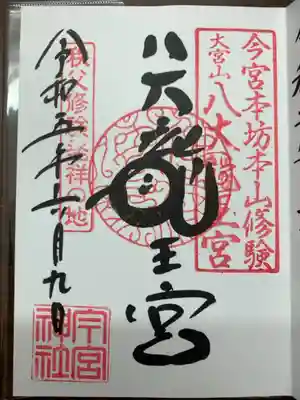 今宮本坊本山修験
大宮山八大龍王宮
八大龍王宮
秩父修験発祥の地
令和五年六月九日
今宮
神社